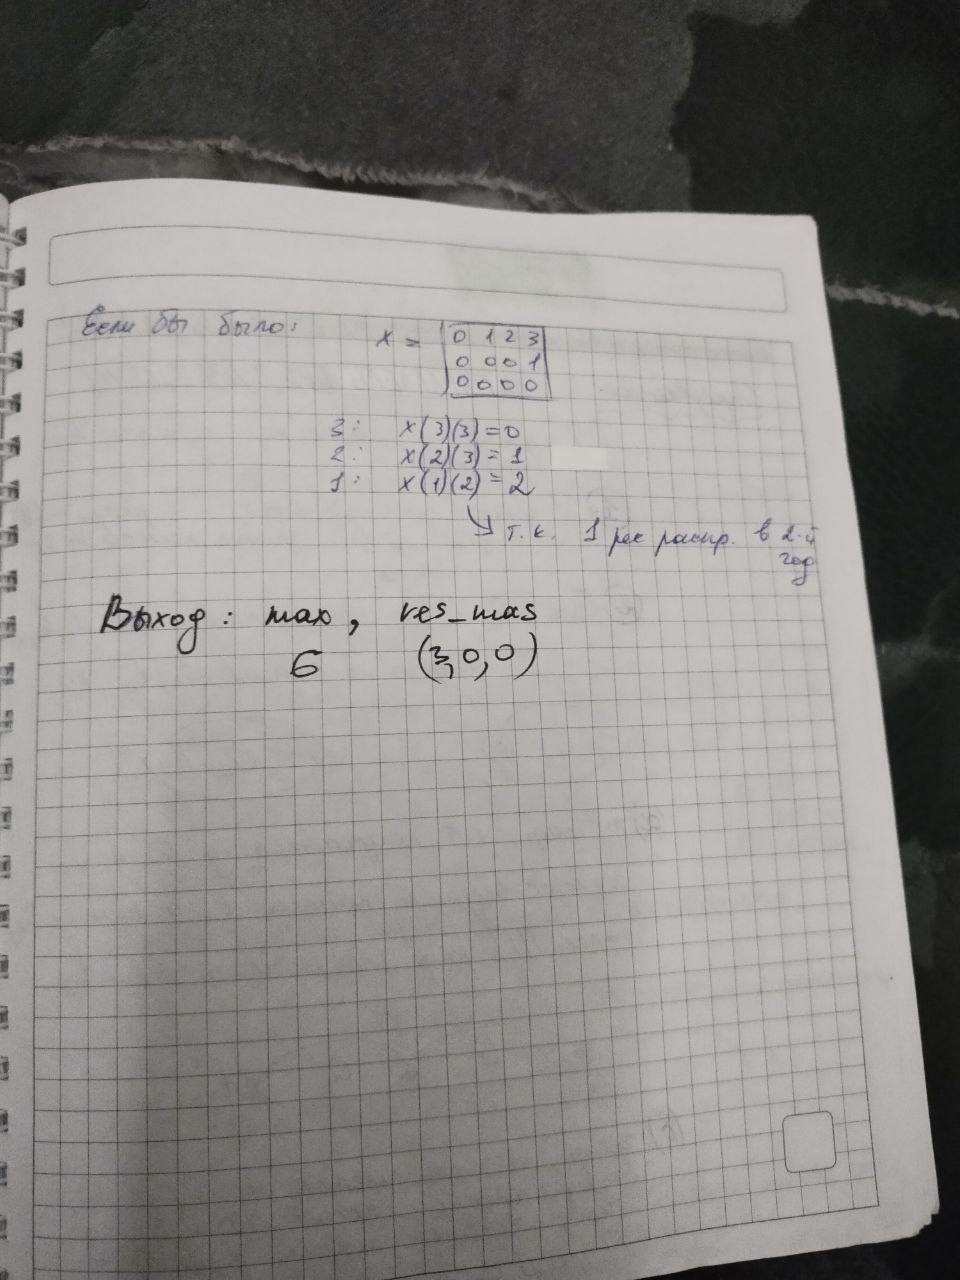 Если бы было:
x = 0 1 2 3
0 0 0 1
0 0 0 0
3: x(3)(3) = 0
2: x(2)(3) = 1
1: x(1)(2) = 2
т.к. 1 рес распр. в 2-й
год
Выход: max, res_mas
6 (3,0,0)